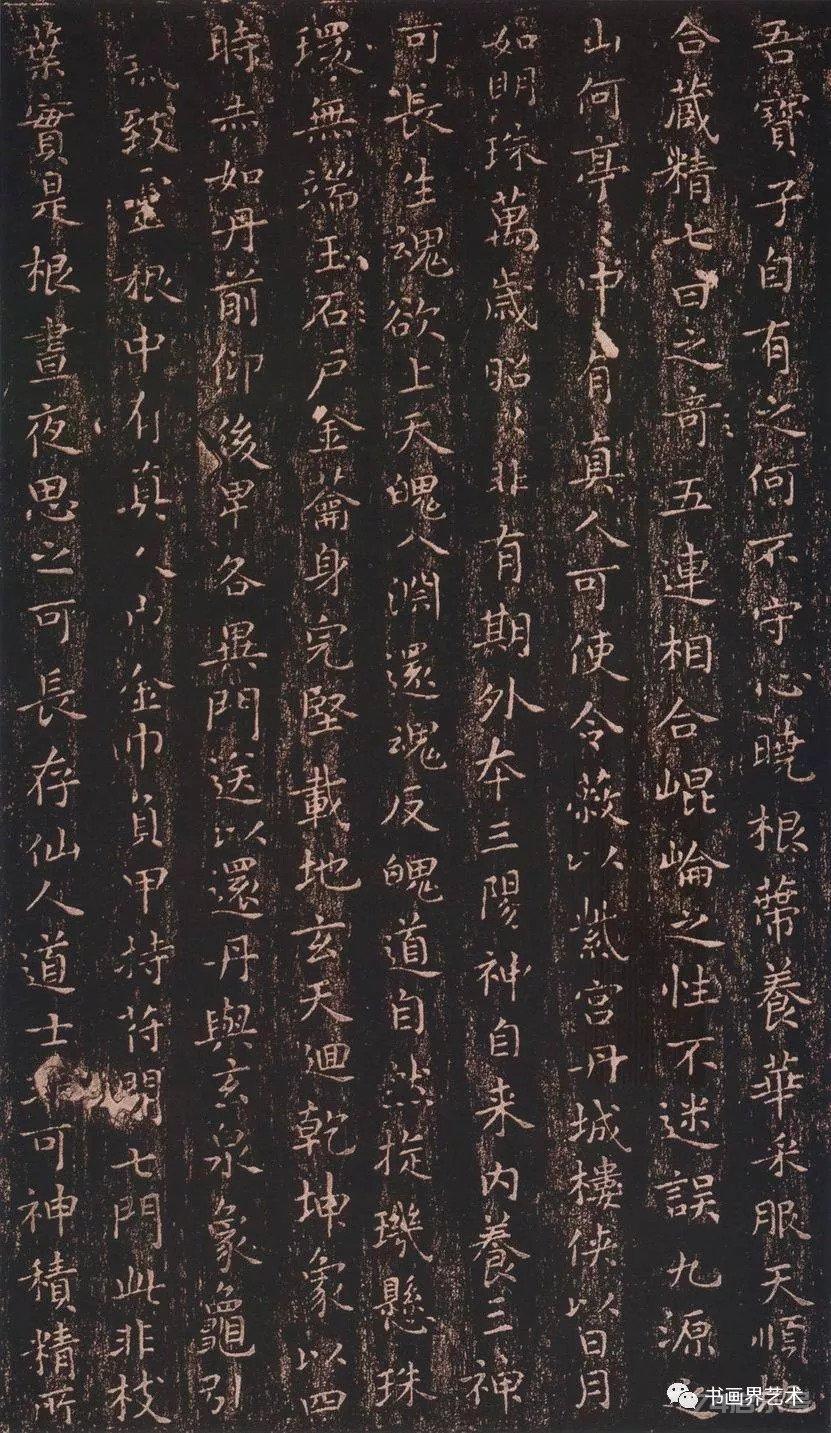 吾寶子自有之何不守心曉根蔕養華采服天順地
合藏精七日之奇五連相合崐崘之性不迷誤九源之
山何亭〻中有真人可使令蔽以紫宮丹城樓俠以日月
如明珠萬歲昭〻非有期外本三陽神自来內養三神
可長生魂欲上天魄入淵還魂反魄道自然旋璣懸珠
環無端玉石戶金籥身完堅載地玄天迴乾坤象以四
時赤如丹前仰後卑各異門送以還丹與玄泉象龜引
氣致靈根中有真人巾金巾負甲持苻開七門此非枝
葉實是根晝夜思之可長存仙人道士可神積精所
书画界艺术